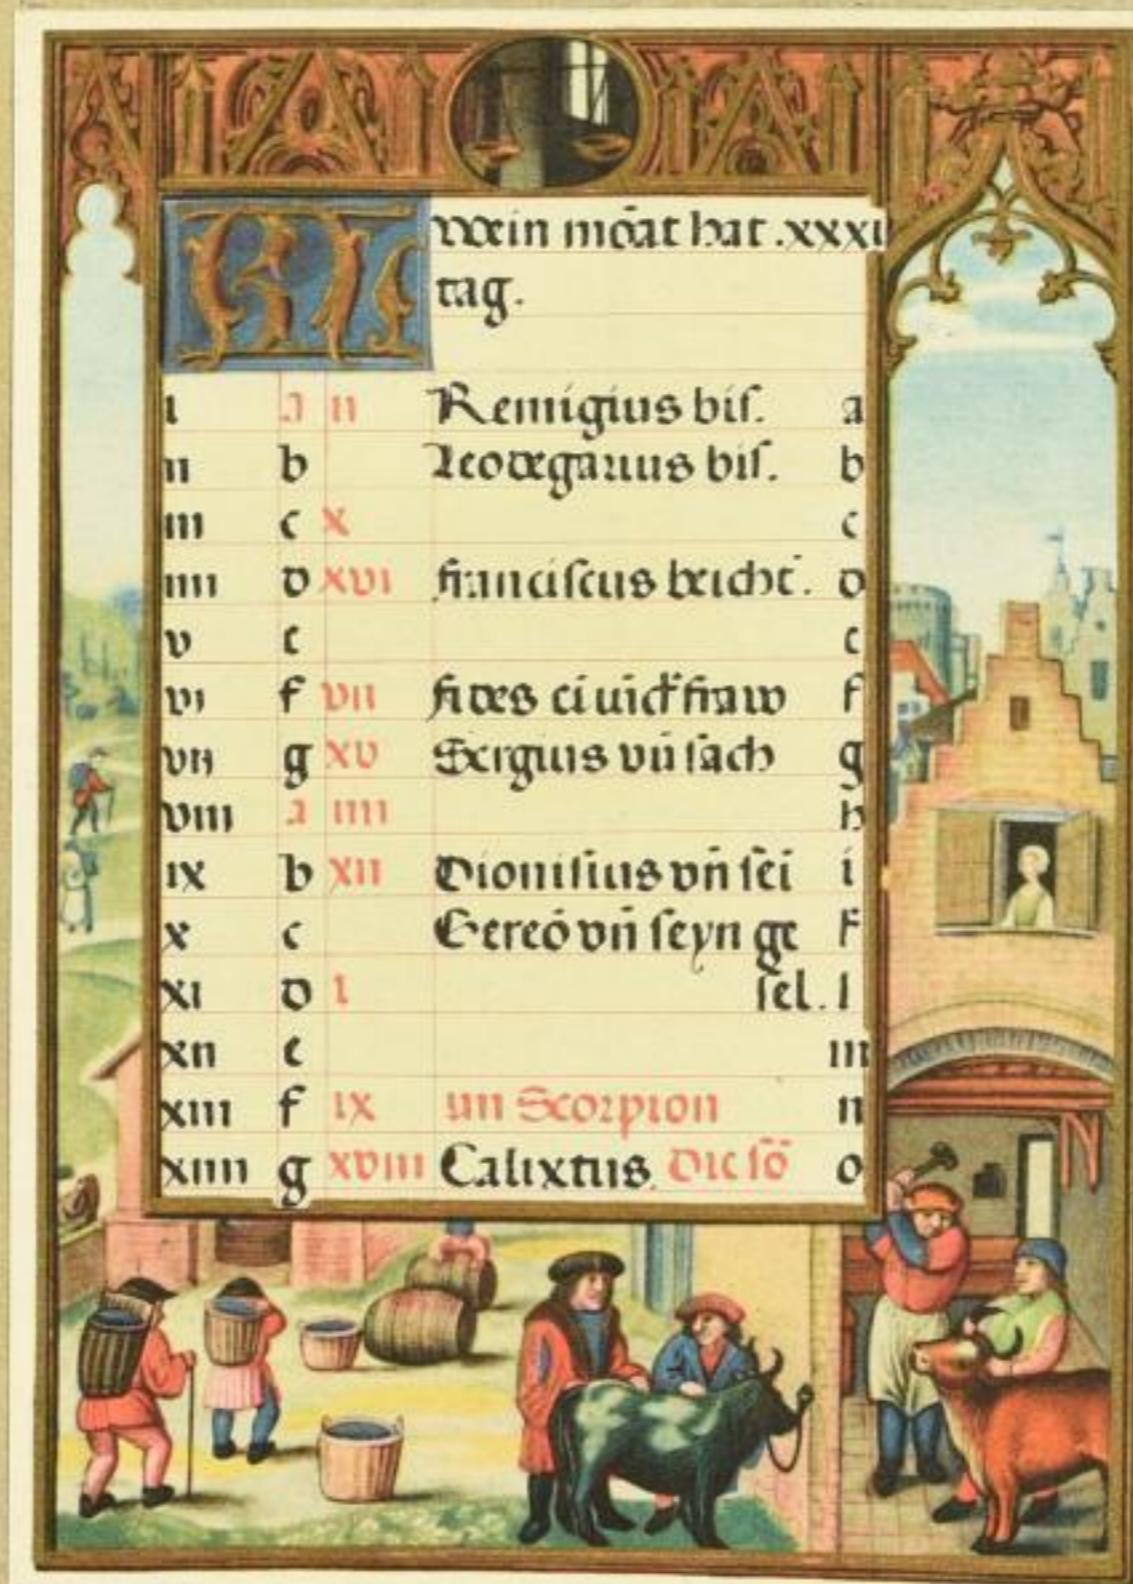 KL Wein mōat hat .xxxi
tag.
i a ii Remigius bis. a
ii b Leodegarius bis. b
iii c x c
iiii d xvi franciscus beicht̄. d
v e e
vi f vii fides ei uickfraw f
vii g xv Sergius vn̄ sach g
viii a iiii h
ix b xii Dionisius vn̄ sei i
x c Gereō vn̄ seyn ge k
xi d i sel. l
xii e m
xiii f ix un Scorpion n
xiiii g xviii Calixtus. Die sō o